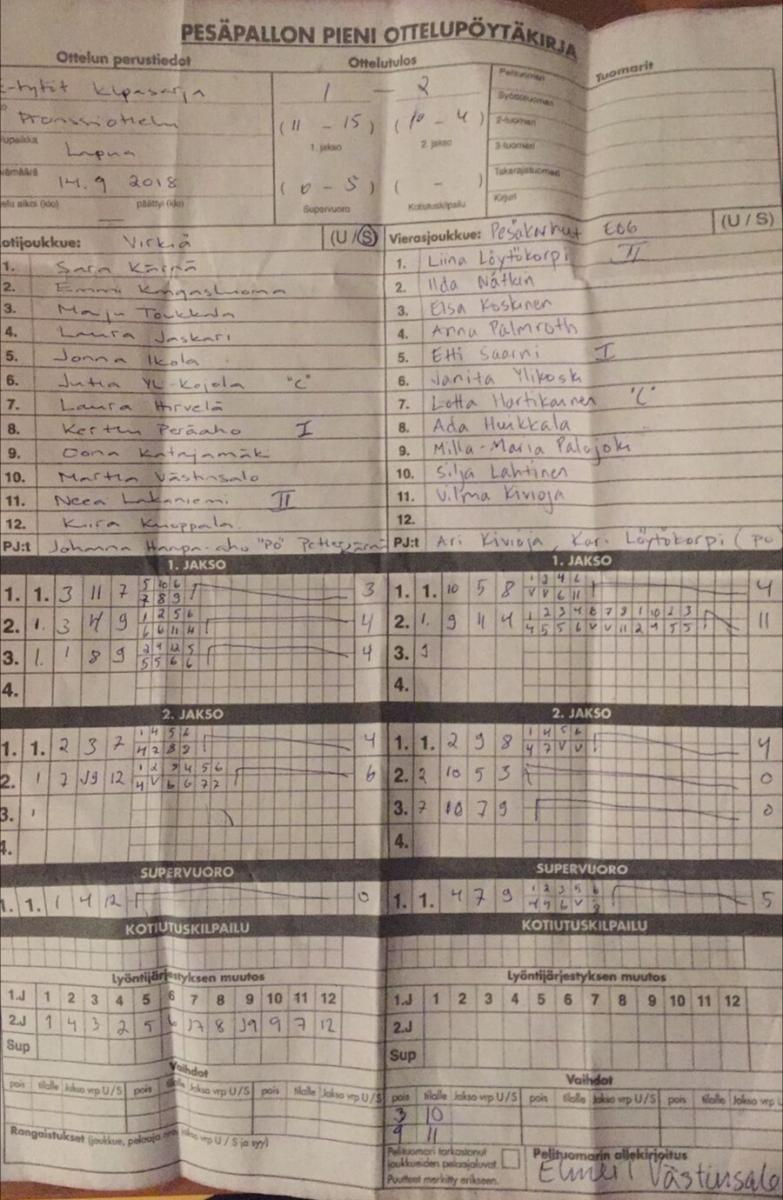 PESÄPALLON PIENI OTTELUPÖYTÄKIRJA
Ottelun perustiedot
Ottelutulos
Tuomarit
-tytöt kilpasarja
1 - 2
Pelituomari
Pronssiottelu
(11 - 15) (10 - 4)
Syöttötuomari
2-tuomari
1. jakso 2. jakso
Lapua
3-tuomari
14.9 2018
(0 - 5) ( - )
Takarajatuomari
päättyi (klo)
Supervuoro Kotiutuskilpailu
Kirjuri
otijoukkue: Virkiä (U / S)
Vierasjoukkue: Pesäkarhut E06 (U / S)
1. Sara Kärnä
1. Liina Löytökorpi II
2. Emmi Kangasluoma
2. Ilda Nätkin
3. Maiju Toukkala
3. Elsa Koskinen
4. Laura Jaskari
4. Anna Palmroth
5. Jonna Ikola
5. Etti Saarni I
6. Jutta Yli-Kojola "C"
6. Janita Ylikoski
7. Laura Hirvelä
7. Lotta Hartikainen "C"
8. Kerttu Peräaho I
8. Ada Huikkala
9. Oona Katajamäk
9. Milla-Maria Palojoki
10. Martta Västinsalo
10. Silja Lahtinen
11. Neea Lakaniemi II
11. Vilma Kivioja
12. Kiira Knuppala
12.
PJ:t Johanna Haapa-aho "PO"
PJ:t Ari Kivioja, Kari Löytökorpi (PU
1. JAKSO
1. JAKSO
1. 1. 3 11 7 5 10 6 3
7 8 9
1. 1. 10 5 8 1 3 4 6 4
V V 6 11
2. 1. 3 4 9 1 2 5 6 4
6 6 11 4
2. 1. 9 4 4 1 2 3 4 6 7 9 1 10 2 3 11
4 5 5 6 V V 11 2 4 5 5
3. 1. 1 8 9 2 9 12 5 4
5 5 6 6
3. 9
4.
4.
2. JAKSO
2. JAKSO
1. 1. 2 3 7 1 4 5 6 4
4 2 8 9
1. 1. 2 9 8 1 4 5 6 4
4 7 V V
2. 1 7 J9 12 1 2 3 4 5 6 6
4 V 6 6 7 7
2. 2 10 5 3 0
3.
3. 7 10 7 9 0
4.
4.
SUPERVUORO
SUPERVUORO
1. 1. 1 4 12 0
1. 1. 4 7 9 1 2 3 5 6 5
4 4 6 V 8
KOTIUTUSKILPAILU
KOTIUTUSKILPAILU
Lyöntijärjestyksen muutos
Lyöntijärjestyksen muutos
1.J 1 2 3 4 5 6 7 8 9 10 11 12
1.J 1 2 3 4 5 6 7 8 9 10 11 12
2.J 1 4 3 2 5 6 J7 8 J9 9 7 12
2.J
Sup
Sup
Vaihdot
Vaihdot
pois tilalle Jakso vrp U/S pois tilalle Jakso vrp U/S pois tilalle Jakso vrp U/S
pois tilalle Jakso vrp U/S pois tilalle Jakso vrp U/S pois tilalle Jakso vrp
3 10
9 11
Rangaistukset (joukkue, pelaaja vrp U / S ja syy)
Pelituomari tarkastanut
joukkueiden pelaajaluvat.
Puutteet merkitty erikseen.
Pelituomarin allekirjoitus
Elmeri Västinsalo